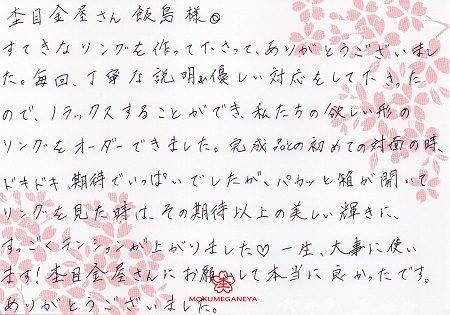 杢目金屋さん 飯島 様☺
すてきなリングを作って下さって、ありがとうございまし
た。毎回、丁寧な説明と優しい対応をして下さった
ので、リラックスすることができ、私たちの欲しい形の
リングをオーダーできました。完成品との初めての対面の時、
ドキドキ、期待でいっぱいでしたが、パカッと箱が開いて
リングを見た時は、その期待以上の美しい輝きに、
すっごくテンションが上がりました♡ 一生、大事に使い
ます！杢目金屋さんにお願いして本当に良かったです。
MOKUMEGANEYA
ありがとうございました。